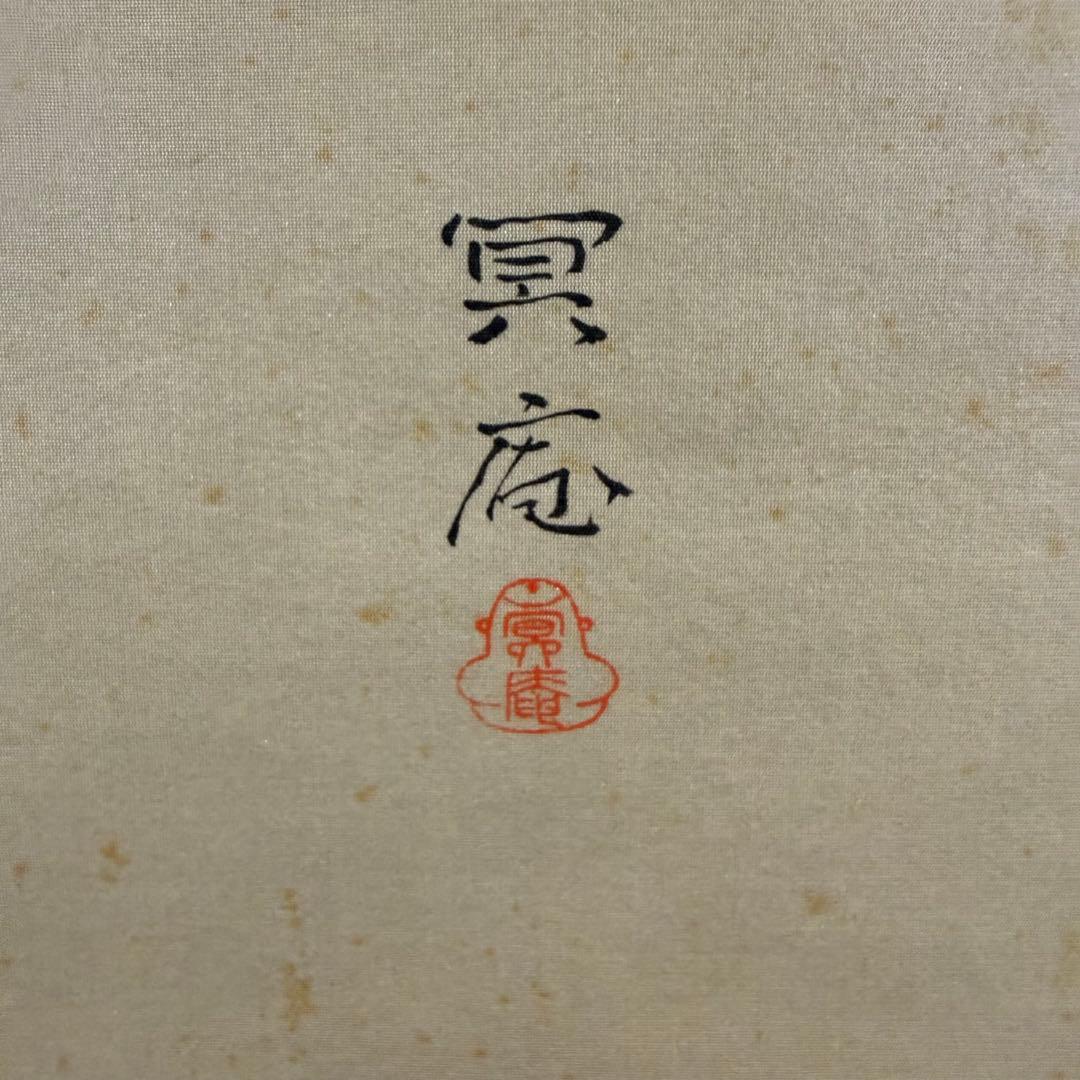 冥庵
冥庵